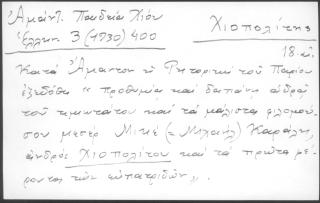 Ἀμάντ. Παιδεία Χίου
Ἑλλην. 3 (1930) 400
Χιοπολίτης
18. αἰ.
Κατὰ Ἄμαντον ἡ Ῥητορικὴ τοῦ Παρίου
ἐξεδόθη "προθυμίᾳ καὶ δαπάνῃ ἀνδρὸς
τοῦ τιμιωτάτου καὶ τὰ μάλιστα φιλομού-
σου μεσὲρ Μικὲ (= Μιχαὴλ) Καράλη,
ἀνδρὸς Χιοπολίτου καὶ τὰ πρῶτα φέ-
ροντος τῶν εὐπατριδῶν".